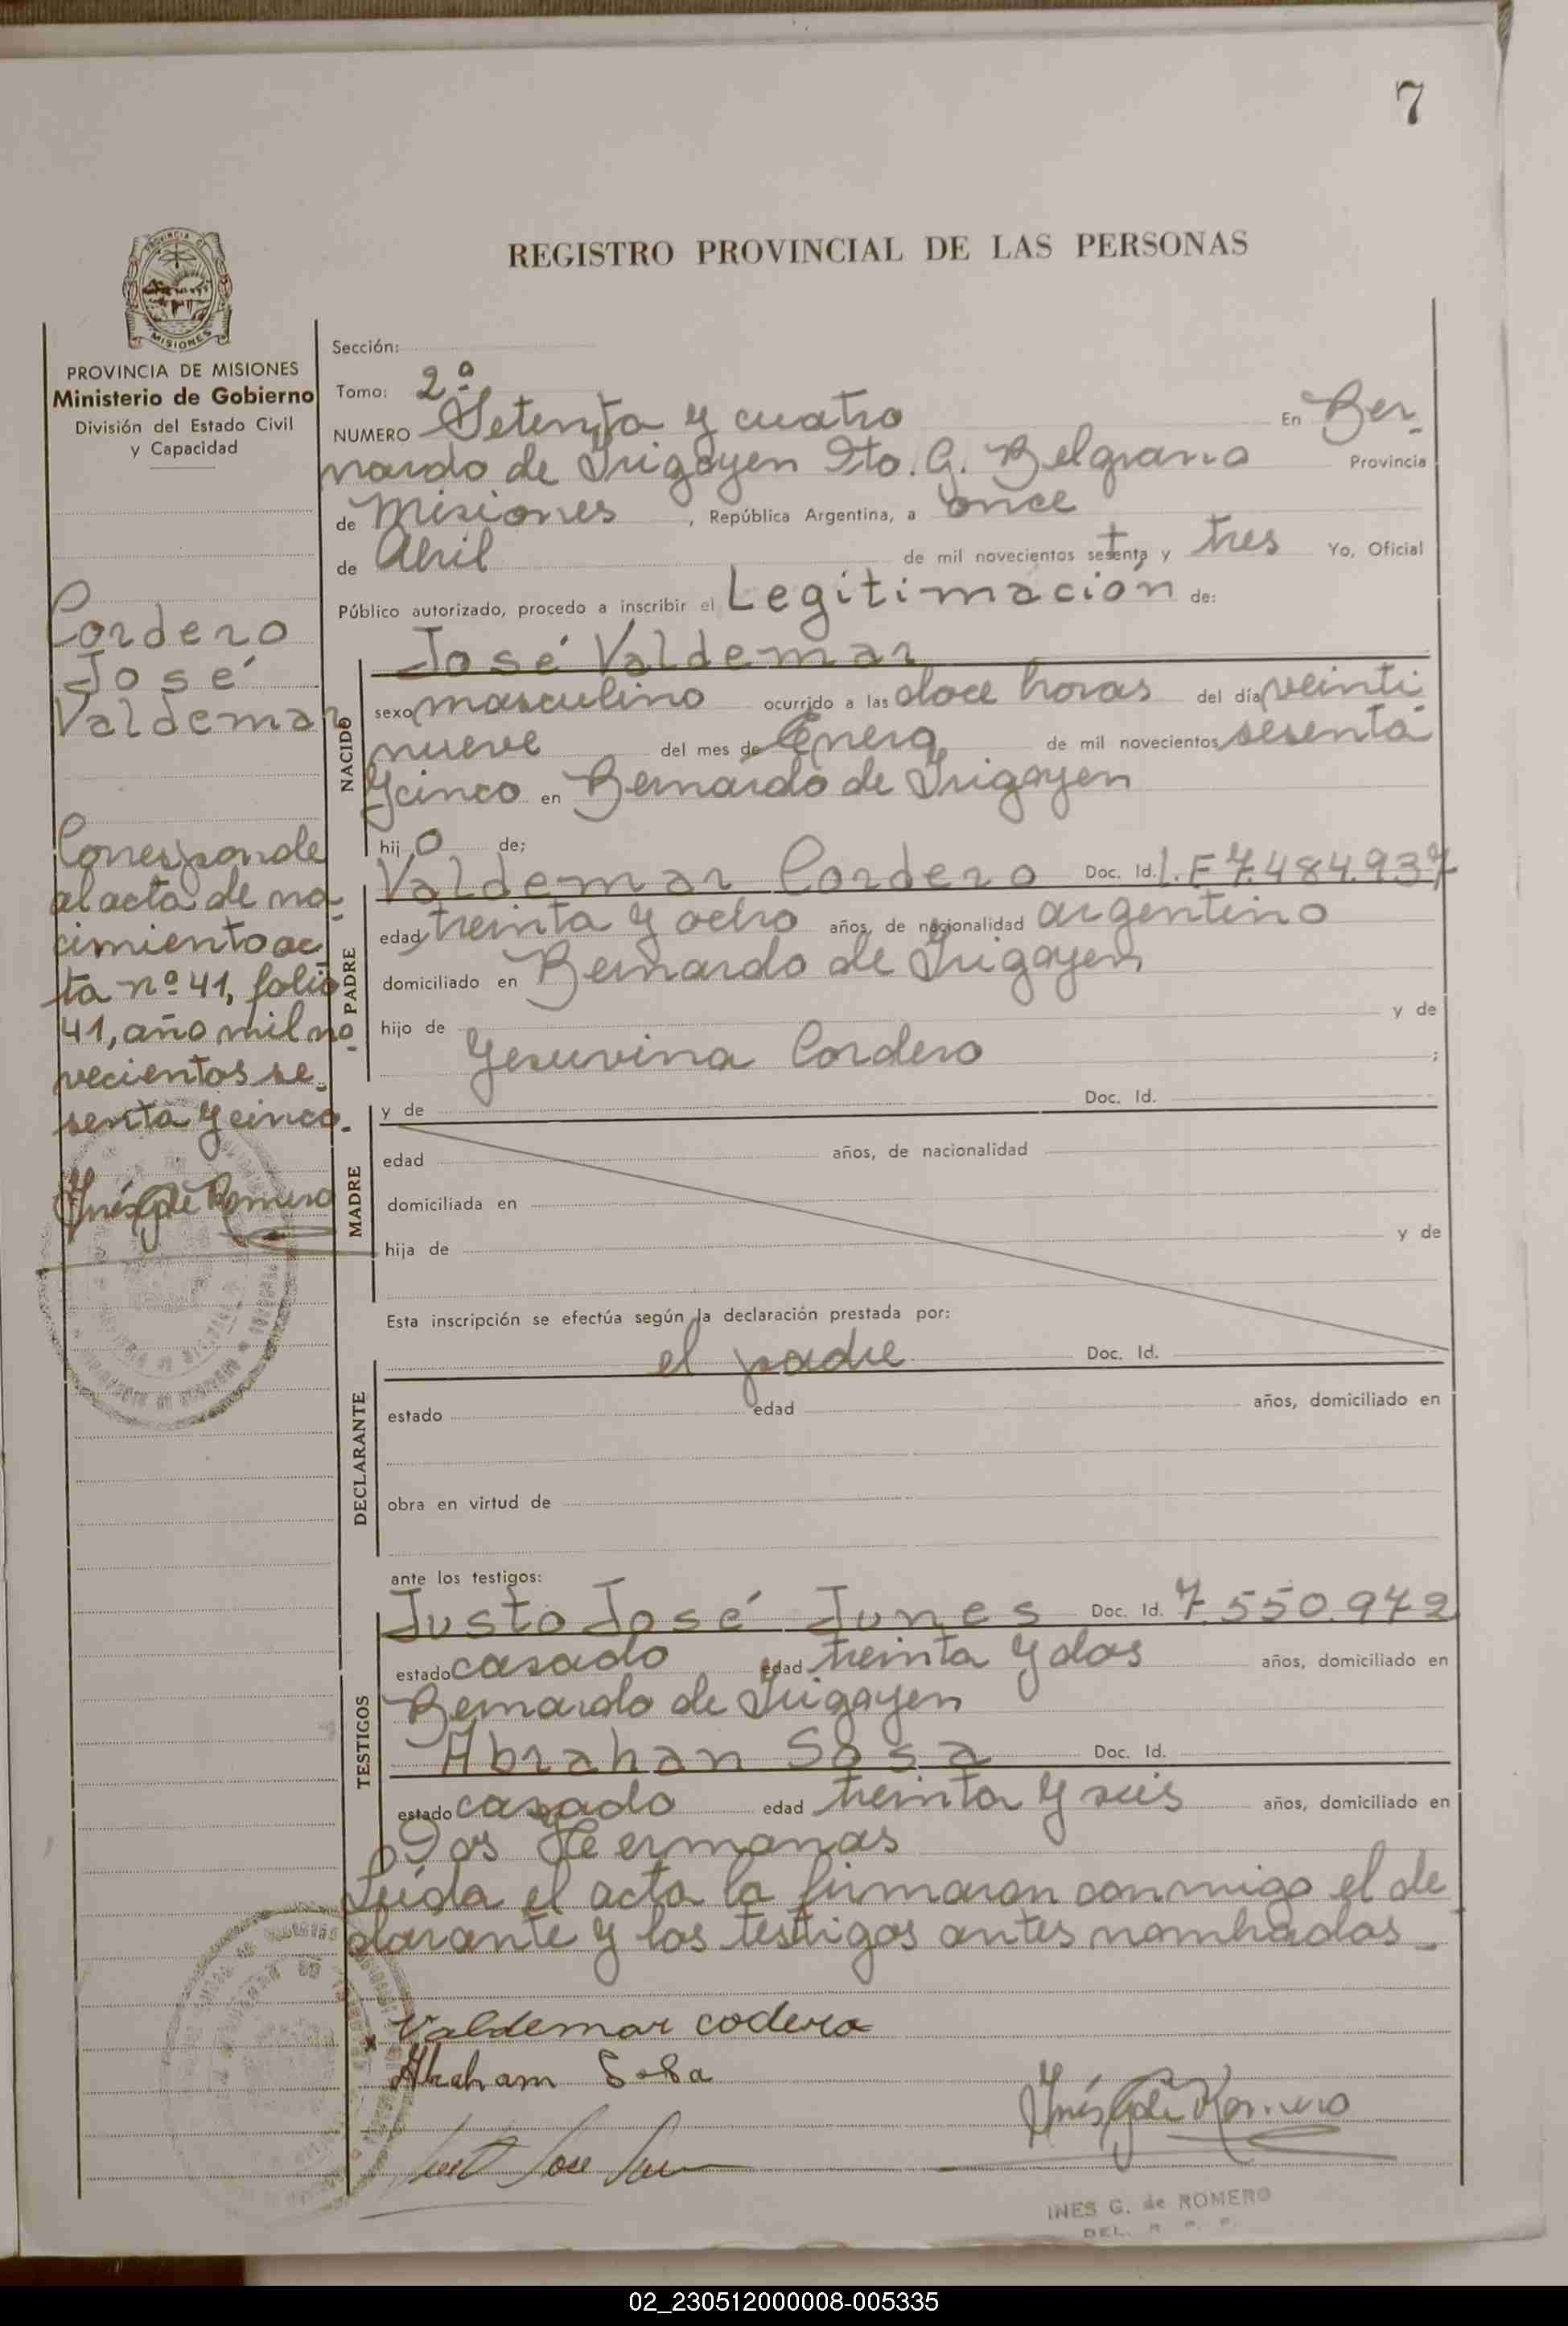 7
REGISTRO PROVINCIAL DE LAS PERSONAS
PROVINCIA DE
MISIONES
PROVINCIA DE MISIONES
Ministerio de Gobierno
División del Estado Civil
y Capacidad
Cordero
José
Valdemar
Corresponde
al acta de na-
cimiento ac
ta nº 41, folio
41, año mil no-
vecientos se-
senta y cinco.
Inés G de Romero
Sección:
Tomo: 2º
NUMERO Setenta y cuatro En Ber-
nardo de Irigoyen Dto. G. Belgrano Provincia
de Misiones , República Argentina, a once
de Abril de mil novecientos setenta y tres Yo, Oficial
Público autorizado, procedo a inscribir el Legitimación de:
José Valdemar
NACIDO
sexo masculino ocurrido a las doce horas del día veinti
nueve del mes de Enero de mil novecientos sesenta
y cinco en Bernardo de Irigoyen
hij o de;
Valdemar Cordero Doc. Id. L.E 7.484.937
PADRE
edad treinta y ocho años, de nacionalidad argentino
domiciliado en Bernardo de Irigoyen
hijo de y de
Yesuvina Cordero ;
y de Doc. Id.
MADRE
edad años, de nacionalidad
domiciliada en
hija de y de
Esta inscripción se efectúa según la declaración prestada por:
el padre Doc. Id.
DECLARANTE
estado edad años, domiciliado en
obra en virtud de
ante los testigos:
Justo José Junes Doc. Id. 7.550.972
TESTIGOS
estado casado edad treinta y dos años, domiciliado en
Bernardo de Irigoyen
Abrahan Sosa Doc. Id.
estado casado edad treinta y seis años, domiciliado en
Dos Hermanas
Leída el acta la firmaron conmigo el de
clarante y los testigos antes nombrados
Valdemar codero
Abraham Sosa
Inés G de Romero
Jose
INES G. de ROMERO
DEL. R. P. P.
02_230512000008-005335